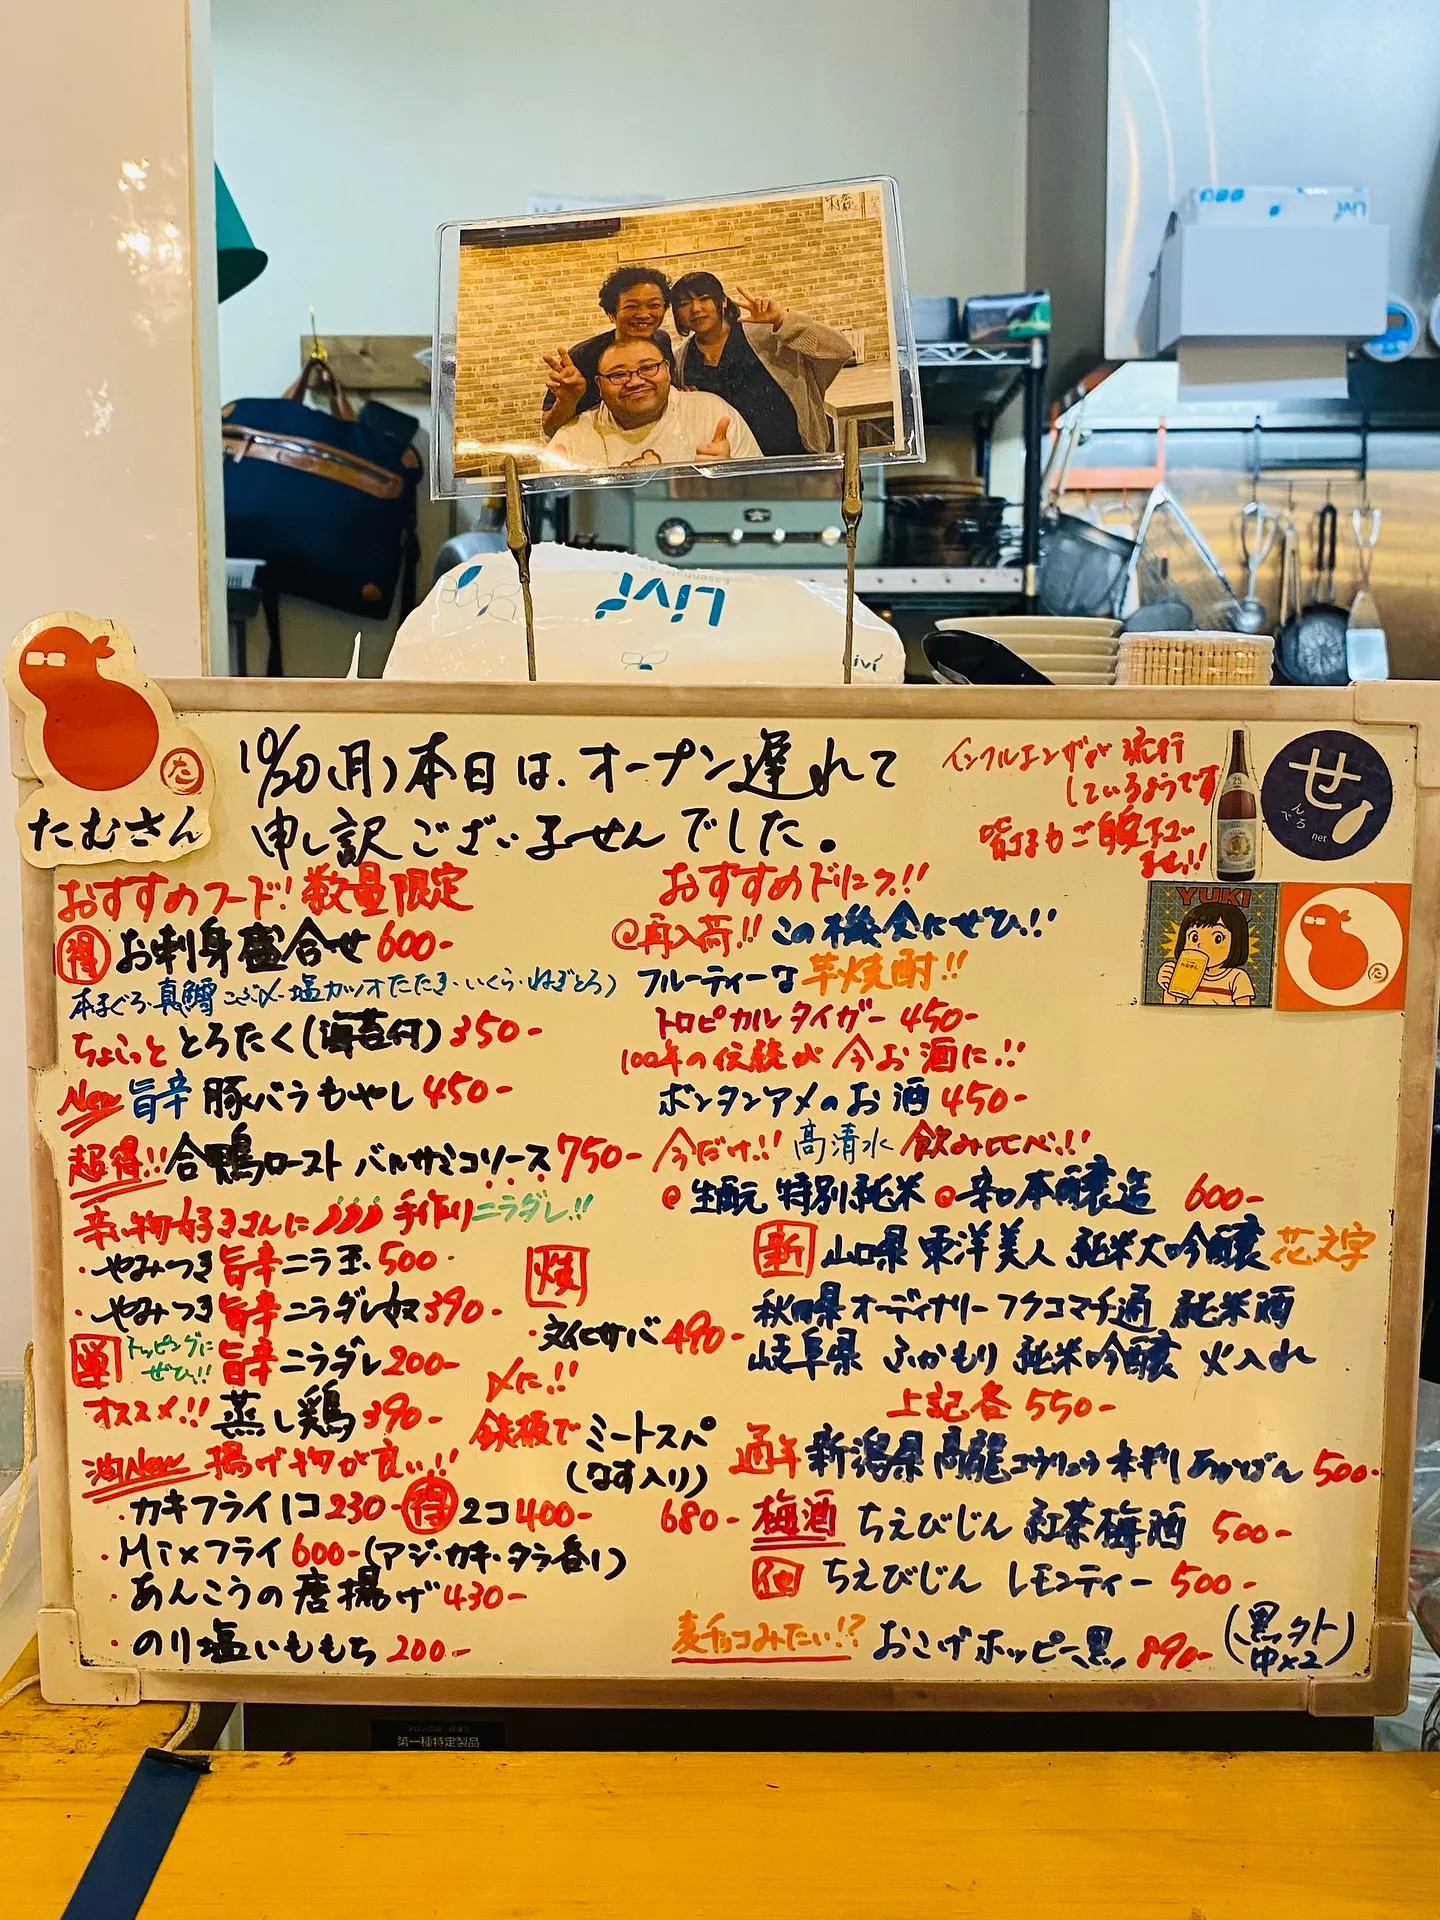 Livi
Livi
Livi
たむさん
た
10/20(月)本日は、オープン遅れて
申し訳ございませんでした。
インフルエンザが流行
しているようです
皆様もご自愛下さい
ませ!!
せ
んでろ
ner
YUKI
おすすめフード!数量限定
得 お刺身盛合せ 600-
本まぐろ・真鯛こぶ〆・塩カツオたたき・いくら・ねぎとろ)
ちょこっと とろたく(海苔付) 350-
New 旨辛 豚バラもやし 450-
超得!! 合鴨ロースト バルサミコソース 750-
辛い物好きさんに 手作りニラダレ!!
・やみつき旨辛ニラ玉 500-
・やみつき旨辛ニラダレ奴 390-
単 トッピングにぜひ!! 旨辛ニラダレ 200-
オススメ!! 蒸し鶏 390-
油New 揚げ物が良い!!
・カキフライ1コ 230- 得 2コ 400-
・Mixフライ 600-(アジ・カキ・タラ各1)
・あんこうの唐揚げ 430-
・のり塩いももち 200-
焼
・文化サバ 490-
〆に!!
鉄板で ミートスパ
(なす入り)
680-
おすすめドリンク!!
@再入荷!! この機会にぜひ!!
フルーティーな芋焼酎!!
トロピカルタイガー 450-
100年の伝統が今お酒に!!
ボンタンアメのお酒 450-
今だけ!! 高清水 飲み比べ!!
@生酛特別純米 @辛口本醸造 600-
新 山口県 東洋美人 純米大吟醸 花文字
秋田県 オーディナリーフクコマチ 純米酒
岐阜県 ふかもり 純米吟醸 火入れ
上記各 550-
通年 新潟県 高龍 コウリュウ 本 500-
梅酒 ちえびじん 紅茶梅酒 500-
ちえびじん レモンティー 500-
麦チョコみたい!? おこげホッピー黒 890-(黒外1 中×2)
第一種特定製品